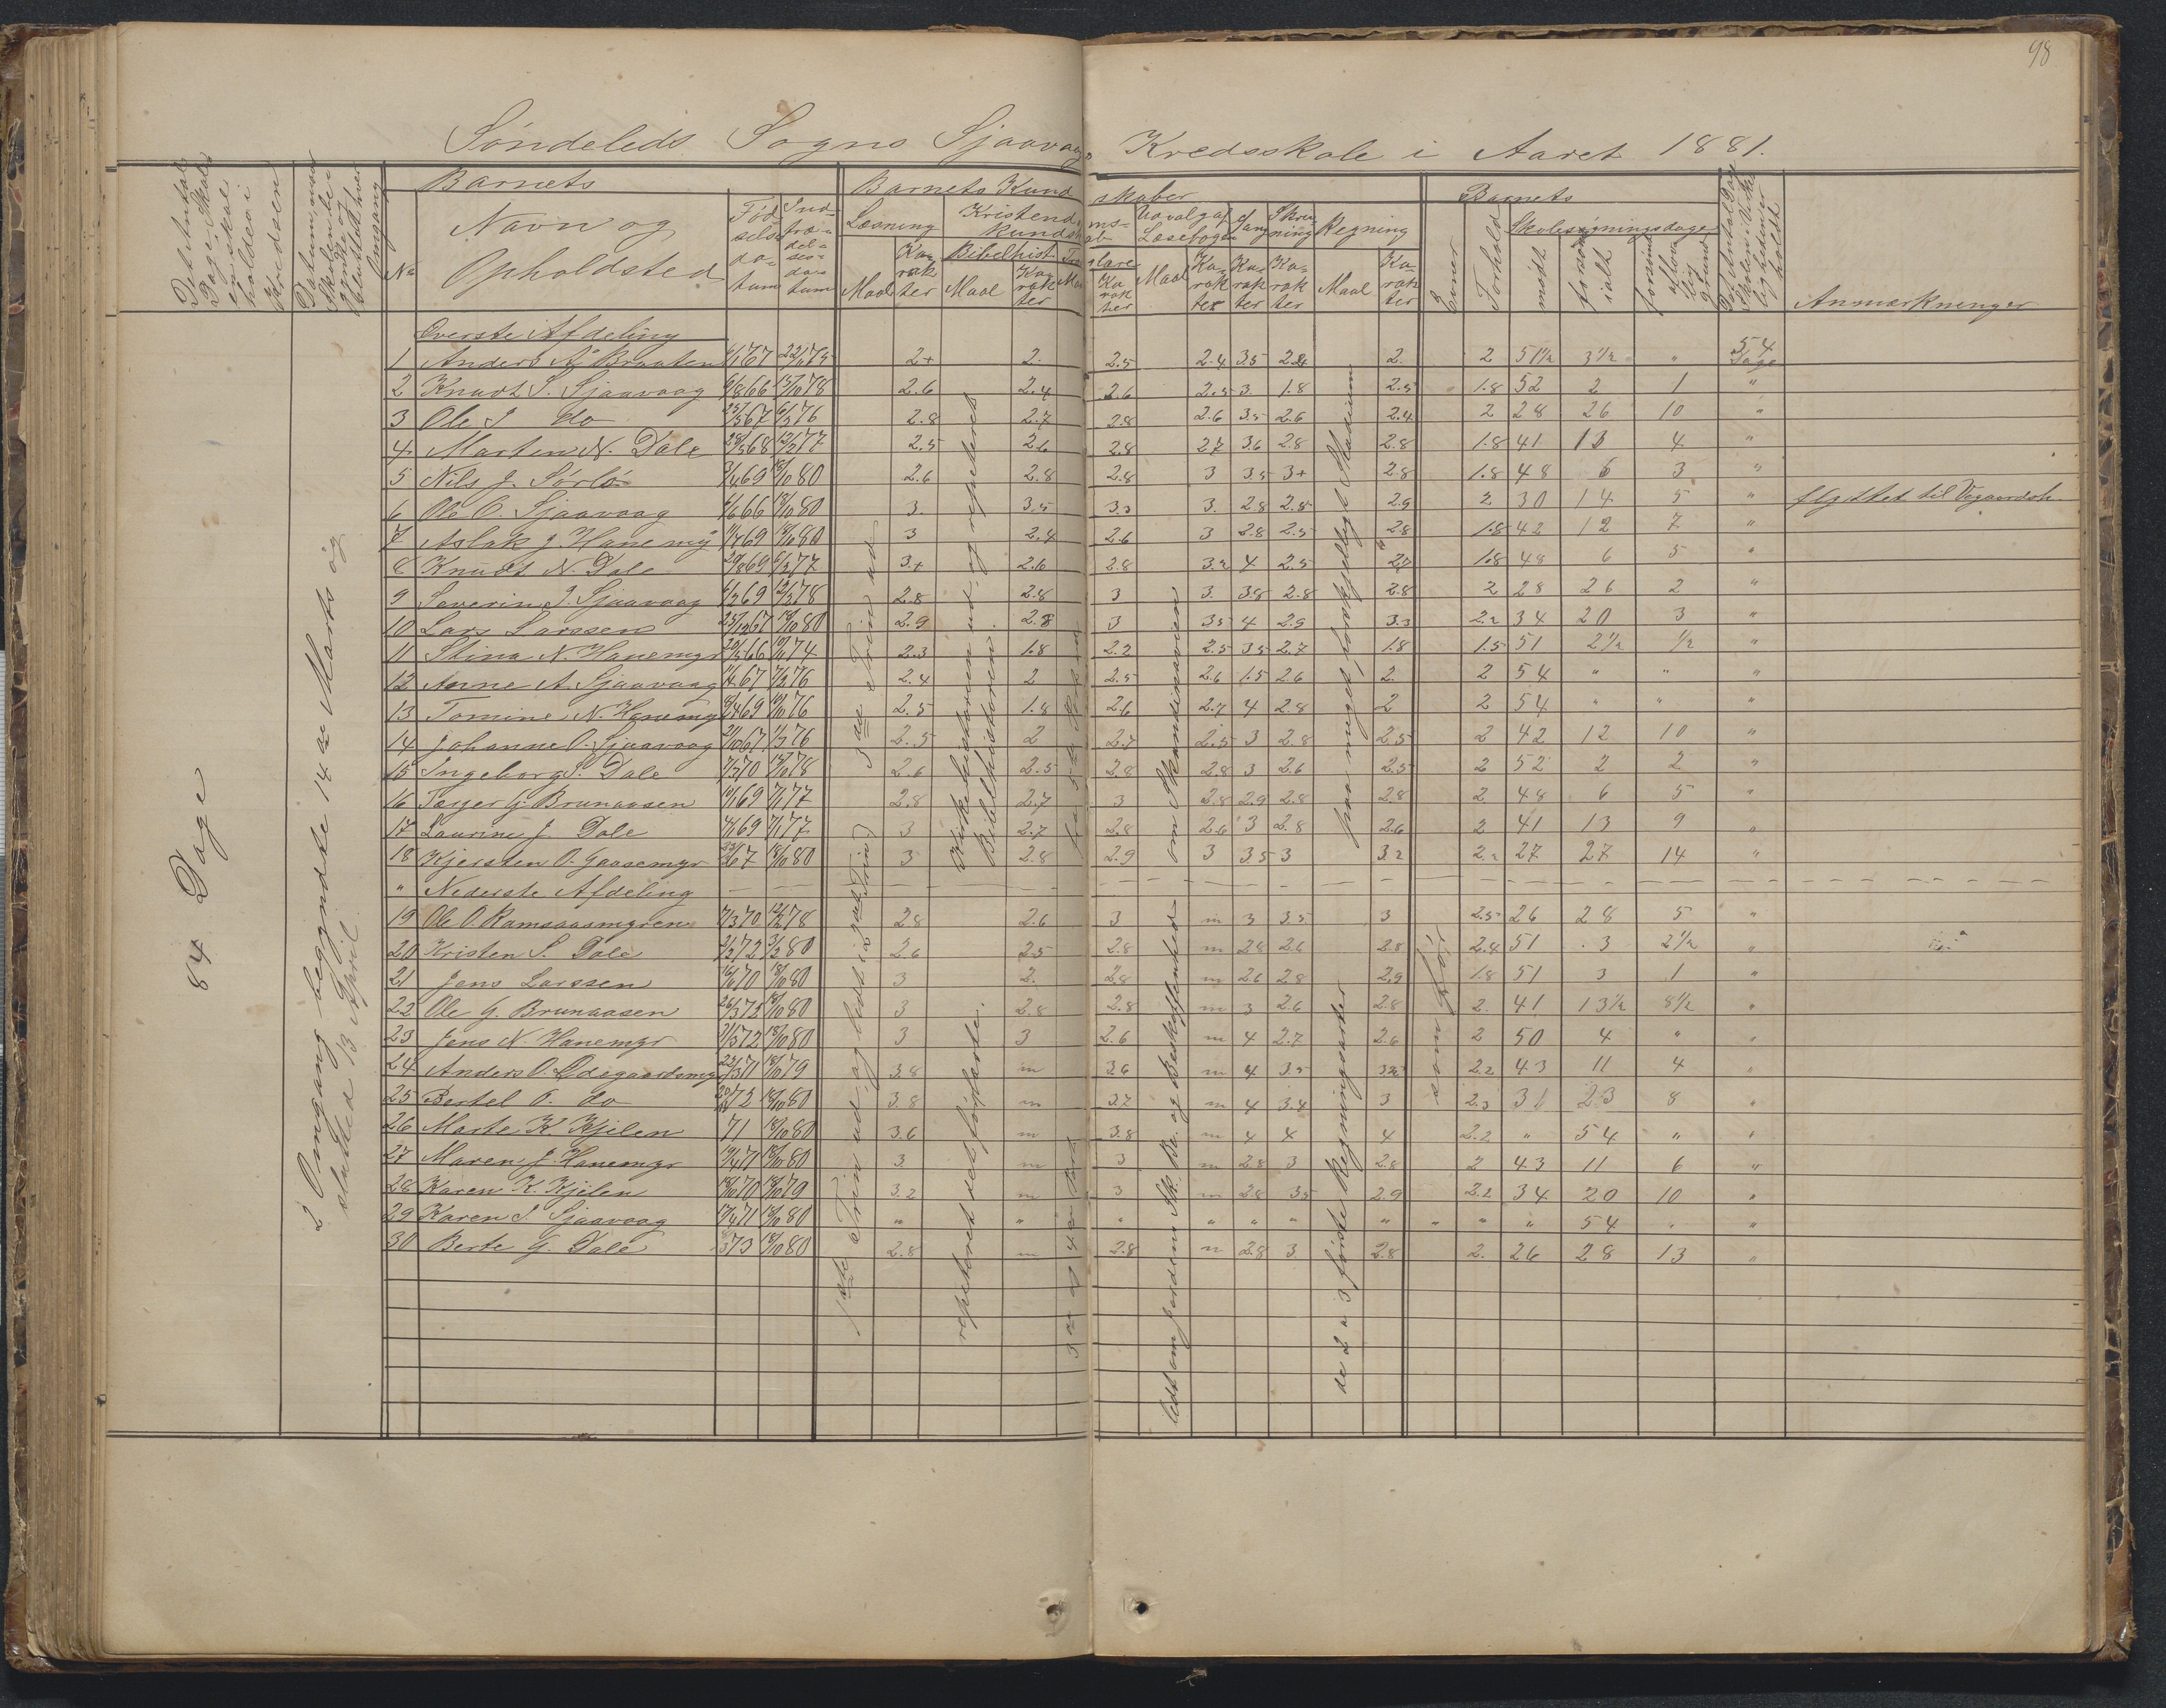 98
Søndeleds Sogns Sjaavaags Kredsskole i Aaret 1881.
Det Antal Dage Skolen skal holdes i Kredsen
Datum, naar Skolen begyndte og sluttedt hver Omgang
No
Barnets
Navn og Opholdsted
Fødselsdatum
Indtrædelsesdatum
Barnets Kundskaber
Læsning
Maal
Karakter
Kristendomskundskab
Bibelhist.
Maal
Karakter
Udvalg af Læsebogen
Maal
Karakter
Sang
Karakter
Skrivning
Karakter
Regning
Maal
Karakter
Barnets
Evner
Forhold
Skolesøgningsdage
mødt
forsømt ialt
forsømt af lovlig Grund
Det Antal Dage Skolen i Virkeligheden er holdt
Anmærkninger
84 Dage
2 Omgang begyndte 14de Marts og
slutted 13 April
Øverste Afdeling
1 Anders A. Braaten 67 22/10 75 2+ 2. 2.5 2.4 3.5 2.4 2. 2 51½ 3½ " 54 Dage
2 Knudt S. Sjaavaag 6/8 66 15/10 78 2.6 2.4 2.6 2.5 3. 1.8 2.5 1.8 52 2 1 "
3 Ole J do 23/5 67 6/3 76 2.8 2.7 2.8 2.6 3.5 2.6 2.4 2 28 26 10 "
4 Marten N. Dale 28/5 68 12/2 77 2.5 2.6 2.8 2.7 3.6 2.8 2.8 1.8 41 13 4 "
5 Nils J. Sørlø 3/4 69 18/10 80 2.6 2.8 2.8 3 3.5 3+ 2.8 1.8 48 6 3 "
6 Ole O. Sjaavaag 4/6 66 18/10 80 3. 3.5 3.3 3. 2.8 2.8 2.9 2 30 14 5 " flyttet til Vegaardsh.
7 Aslak J. Hanemy 69 18/10 80 3 2.4 2.6 3 2.8 2.5 2.8 1.8 42 12 7 "
8 Knudt N. Dale 20/8 69 6/3 77 3+ 2.6 2.8 3.2 4 2.5 2.7 1.8 48 6 5 "
9 Severin J. Sjaavaag 69 12/3 78 2.8 2.8 3 3. 3.8 2.8 2.8 2 28 26 2 "
10 Lars Larssen 25/12 67 18/10 80 2.9 2.8 3 3.5 4 2.9 3.3 2.2 34 20 3 "
11 Stina N. Hanemyr 20/5 66 74 2.3 1.8 2.2 2.5 3.5 2.7 1.8 1.5 51 2½ ½ "
12 Anne A. Sjaavaag 67 7/3 76 2.4 2 2.5 2.6 1.5 2.6 2. 2 54 " " "
13 Tomine N. Hanemyr 69 76 2.5 1.8 2.6 2.7 4 2.8 2 2 54 " " "
14 Johanne O. Sjaavaag 21/10 67 7/3 76 2.5 2 2.7 2.5 3 2.8 2.5 2 42 12 10 "
15 Ingeborg S. Dale 70 15/10 78 2.6 2.5 2.8 2.8 3 2.6 2.5 2 52 2 2 "
16 Tarjer G. Brunaasen 69 77 2.8 2.7 3 2.8 2.9 2.8 2.8 2 48 6 5 "
17 Laurine J. Dale 69 77 3 2.7 2.8 2.6 3 2.8 2.6 2 41 13 9 "
18 Kjersten O. Gaasemyr 67 18/10 80 3 2.8 2.9 3 3.5 3 3.2 2.2 27 27 14 "
" Nederste Afdeling
19 Ole O. Ramsaasmyren 7/3 70 78 2.8 2.6 3 m 3 3.5 3 2.5 26 28 5 "
20 Kristen S. Dale 2/3 72 3/3 80 2.6 2.5 2.8 m 2.8 2.6 2.8 2.4 51 3 2½ "
21 Jens Larssen 70 18/10 80 3 2. 2.8 m 2.6 2.8 2.9 1.8 51 3 1 "
22 Ole G. Brunaasen 26/3 72 18/10 80 3 2.8 2.8 m 3 2.6 2.8 2. 41 13½ 8½ "
23 Jens N. Hanemyr 72 18/10 80 3 3 2.6 m 4 2.7 2.6 2 50 4 " "
24 Anders O. Ødegaardsmyr 71 18/10 79 3.8 m 3.6 m 4 3.5 2.2 43 11 4 "
25 Bertel O. do 72 18/10 80 3.8 m 3.7 m 4 3.4 3 2.3 31 23 8 "
26 Marte K. Kjilen 71 18/10 80 3.6 m 3.8 m 4 4 4 2.2 " 54 " "
27 Maren J. Hanemyr 71 18/10 80 3. m 3 m 2.8 3 2.8 2 43 11 6 "
28 Karen K. Kjilen 70 18/10 79 3.2 m 3 m 2.8 3.5 2.9 2.2 34 20 10 "
29 Karen J. Sjaavaag 71 18/10 80 " " " " " " " " " " 54 " "
30 Berte G. Dale 73 18/10 80 2.8 m 2.8 m 2.8 3 2.8 2. 26 28 13 "
1ste Trin ud og lidt i 2det Trin)
3de Trin ud
repeteret det forfarte.
Kirkehistorien ud, og repeteret
Bibelhistorien.
lidt om Jordens Sk. Be. og Beskaffenhed
om Skandinavien
de 2 a 3 første Regningsarter
paa meget forskjelligt Stadium
som før